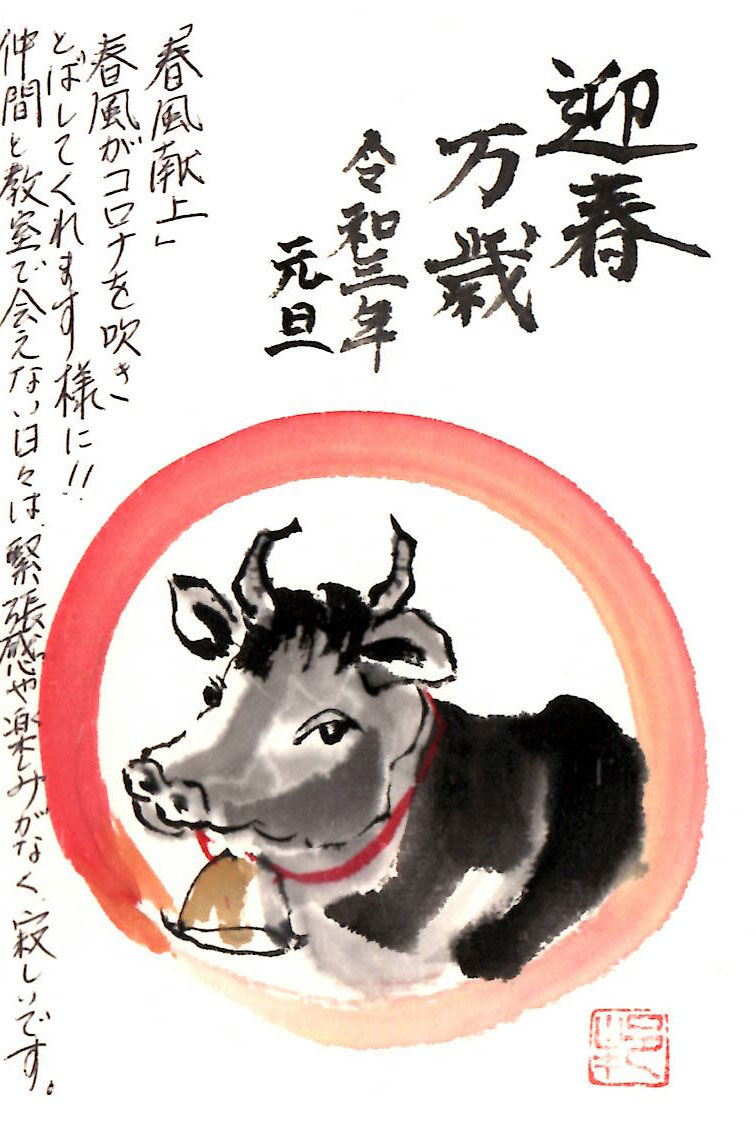 迎春
万歳
令和三年
元旦
「春風献上」
春風がコロナを吹き
とばしてくれます様に!!
仲間と教室で会えない日々は、緊張感や楽しみがなく、寂しいです。